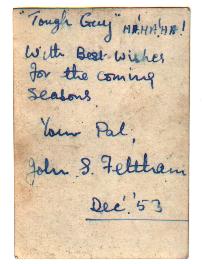 "Tough Guy" HA!HA!HA!
With Best Wishes
for the coming
Seasons.
Your Pal,
John S. Feltham
Dec. '53